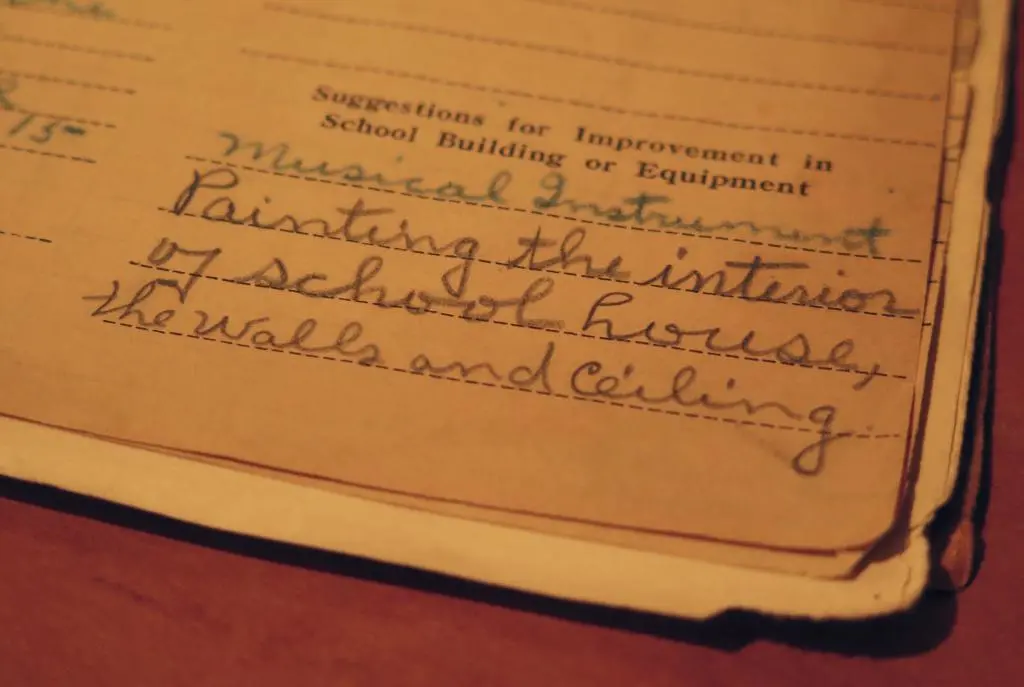 15
Suggestions for Improvement in
School Building or Equipment
Musical Instrument
Painting the interior
of school house,
the walls and ceiling